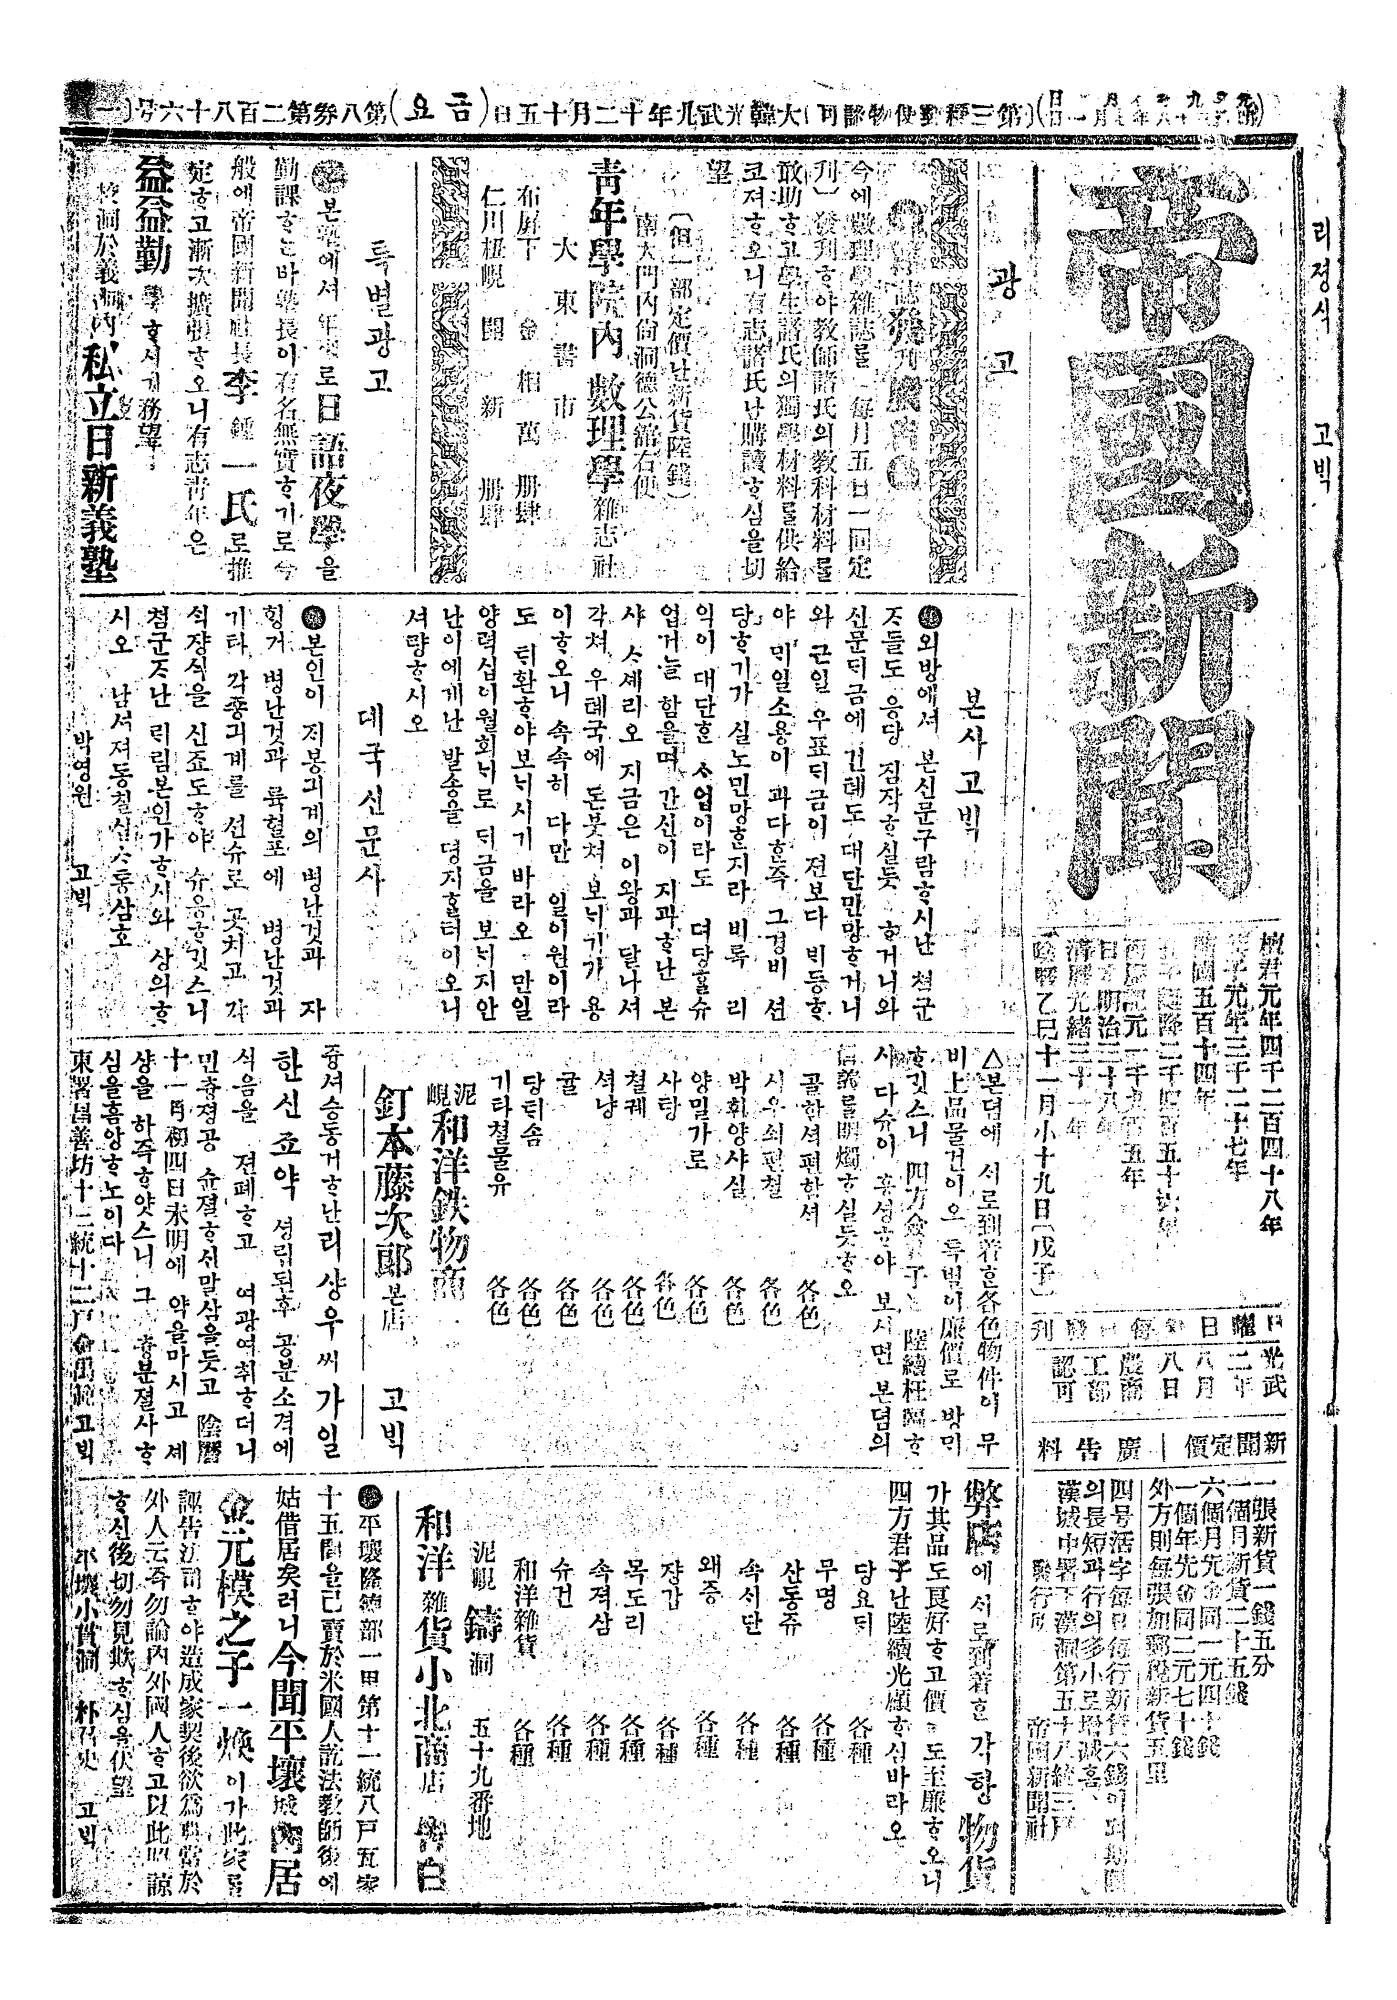 大韓光武九年十二月十五日(금요)第八券第二百八十六号
帝國新聞
檀君元年四千二百四十八年
箕子元年三千二十七年
開國五百十四年
日本明治三十八年
清曆光緒三十一年
陰曆乙巳十一月小十九日(戊子)
光武二年八月八日
農商工部認可
新聞定價 廣告料
一張新貨一錢五分
一個月新貨二十五錢
六個月先金同一元四十錢
一個年先金同二元七十錢
外方則每張加郵稅新貨五里
四号活字每日每行新貨六錢
의長短과行의多小로增減홈
漢城中署下漢洞第五十八統三戶
發行所 帝國新聞社
광 고
雜誌發刊廣告
今에數理學雜誌를 每月五日一回定
刊 發刊ᄒᆞ야敎師諸氏의敎科材料를
敢助ᄒᆞ고學生諸氏의獨學材料를供給
코져ᄒᆞ오니有志諸氏난購讀ᄒᆞ심을切
望
(但一部定價난新貨陸錢)
南大門內尙洞德公舘右便
靑年學院內 數理學雜志社
大東書市
布屛下 金相萬 册肆
仁川杻峴 開新 册肆
특별광고
勤課ᄒᆞ는바塾長이有名無實ᄒᆞ기로今
般에帝國新聞社長李鍾一氏로推
定ᄒᆞ고漸次擴張ᄒᆞ오니有志靑年은
益益勤學ᄒᆞ시기務望
私立日新義塾
본사고ᄇᆡᆨ
외방에셔 본신문구람ᄒᆞ시난 쳠군
ᄌᆞ들도 응당 짐작ᄒᆞ실듯 ᄒᆞ거니와
신문ᄃᆡ금에 건톄도 대단만망ᄒᆞ거니
와 근일 우표ᄃᆡ금이 젼보다 ᄇᆡ등ᄒᆞ
야 ᄆᆡ일소용이 과다ᄒᆞᆫ즉 그경비 션
당ᄒᆞ기가 실노민망ᄒᆞᆫ지라 비록 리
익이 대단ᄒᆞᆫ ᄉᆞ업이라도 뎌당ᄒᆞᆯ슈
업거늘 함을며 간신이 지과ᄒᆞ난 본
샤 ᄉᆞ셰리오 지금은 이왕과 달나셔
각쳐 우톄국에 돈붓쳐 보ᄂᆡ기가 용
이ᄒᆞ오니 속속히 다만 일이원이라
도 ᄃᆡ환ᄒᆞ야보ᄂᆡ시기 바라오 만일
양력십이월회ᄂᆡ로 ᄃᆡ금을 보ᄂᆡ지안
난이에게난 발송을 뎡지ᄒᆞᆯ터이오니
셔량ᄒᆞ시오
뎨국신문사
본인이 지봉긔계의 병난것과 자
힝거 병난것과 륙혈포에 병난것과
기타 각죵긔계를 션슈로 곳치고 각
ᄉᆡᆨ쟝식을 신죠도ᄒᆞ야 슈응ᄒᆞ깃스니
쳠군ᄌᆞ난 ᄅᆡ림본인가ᄒᆞ시와 상의ᄒᆞ
시오 남셔져동칠십ᄉᆞ통삼호
박영원 고ᄇᆡᆨ
△본뎜에 ᄉᆡ로到着ᄒᆞᆫ各色物件이 무
비上品물건이오 특별이廉價로 방ᄆᆡ
ᄒᆞ깃스니 四方僉君子 陸續枉臨ᄒᆞ
사 다슈이 흥셩ᄒᆞ야 보시면 본뎜의
信義를明燭ᄒᆞ실듯ᄒᆞ오
골한셔편한셔 各色
시우쇠편쳘 各色
박휘양사실 各色
양밀가로 各色
사탕 各色
쳘궤 各色
셕냥 各色
귤 各色
당ᄃᆡ솜 各色
기타쳘물유 各色
泥峴 和洋鉄物商
釘本藤次郎 본店 고ᄇᆡᆨ
즁셔승동거ᄒᆞ난리샹우씨가일
한신죠약 셩립된후 공분소격에
식음을 젼폐ᄒᆞ고 여광여취ᄒᆞ더니
민츙졍공 슌졀ᄒᆞ신말삼을듯고 陰曆
十一月初四日未明에 약을마시고 셰
샹을 하즉ᄒᆞ얏스니 그 츙분졀사ᄒᆞ
심을흠앙ᄒᆞ노이다
弊店에ᄉᆡ로到着ᄒᆞᆫ 각항 物貨
가其品도良好ᄒᆞ고價도至廉ᄒᆞ오니
四方君子난陸續光顧ᄒᆞ심바라오
당요ᄃᆡ 各種
무명 各種
산동쥬 各種
속셔단 各種
왜증 各種
쟝갑 各種
목도리 各種
속젹삼 各種
슈건 各種
和洋雜貨 各種
泥峴 鑄洞 五十九番地
和洋雜貨小北商店 告白
平壤隆德部一里第十一統八戶瓦家
十五間을已賣於米國人說法敎師後에
姑借居矣러니今聞平壤城內居
金元模之子一煥이가此家를
誣告江司ᄒᆞ야造成家契後欲爲典當於
外人云즉勿論內外國人ᄒᆞ고以此照諒
ᄒᆞ신後切勿見欺ᄒᆞ심을伏望
平壤小貫洞 朴召史 고ᄇᆡᆨ
리졍식 고ᄇᆡᆨ